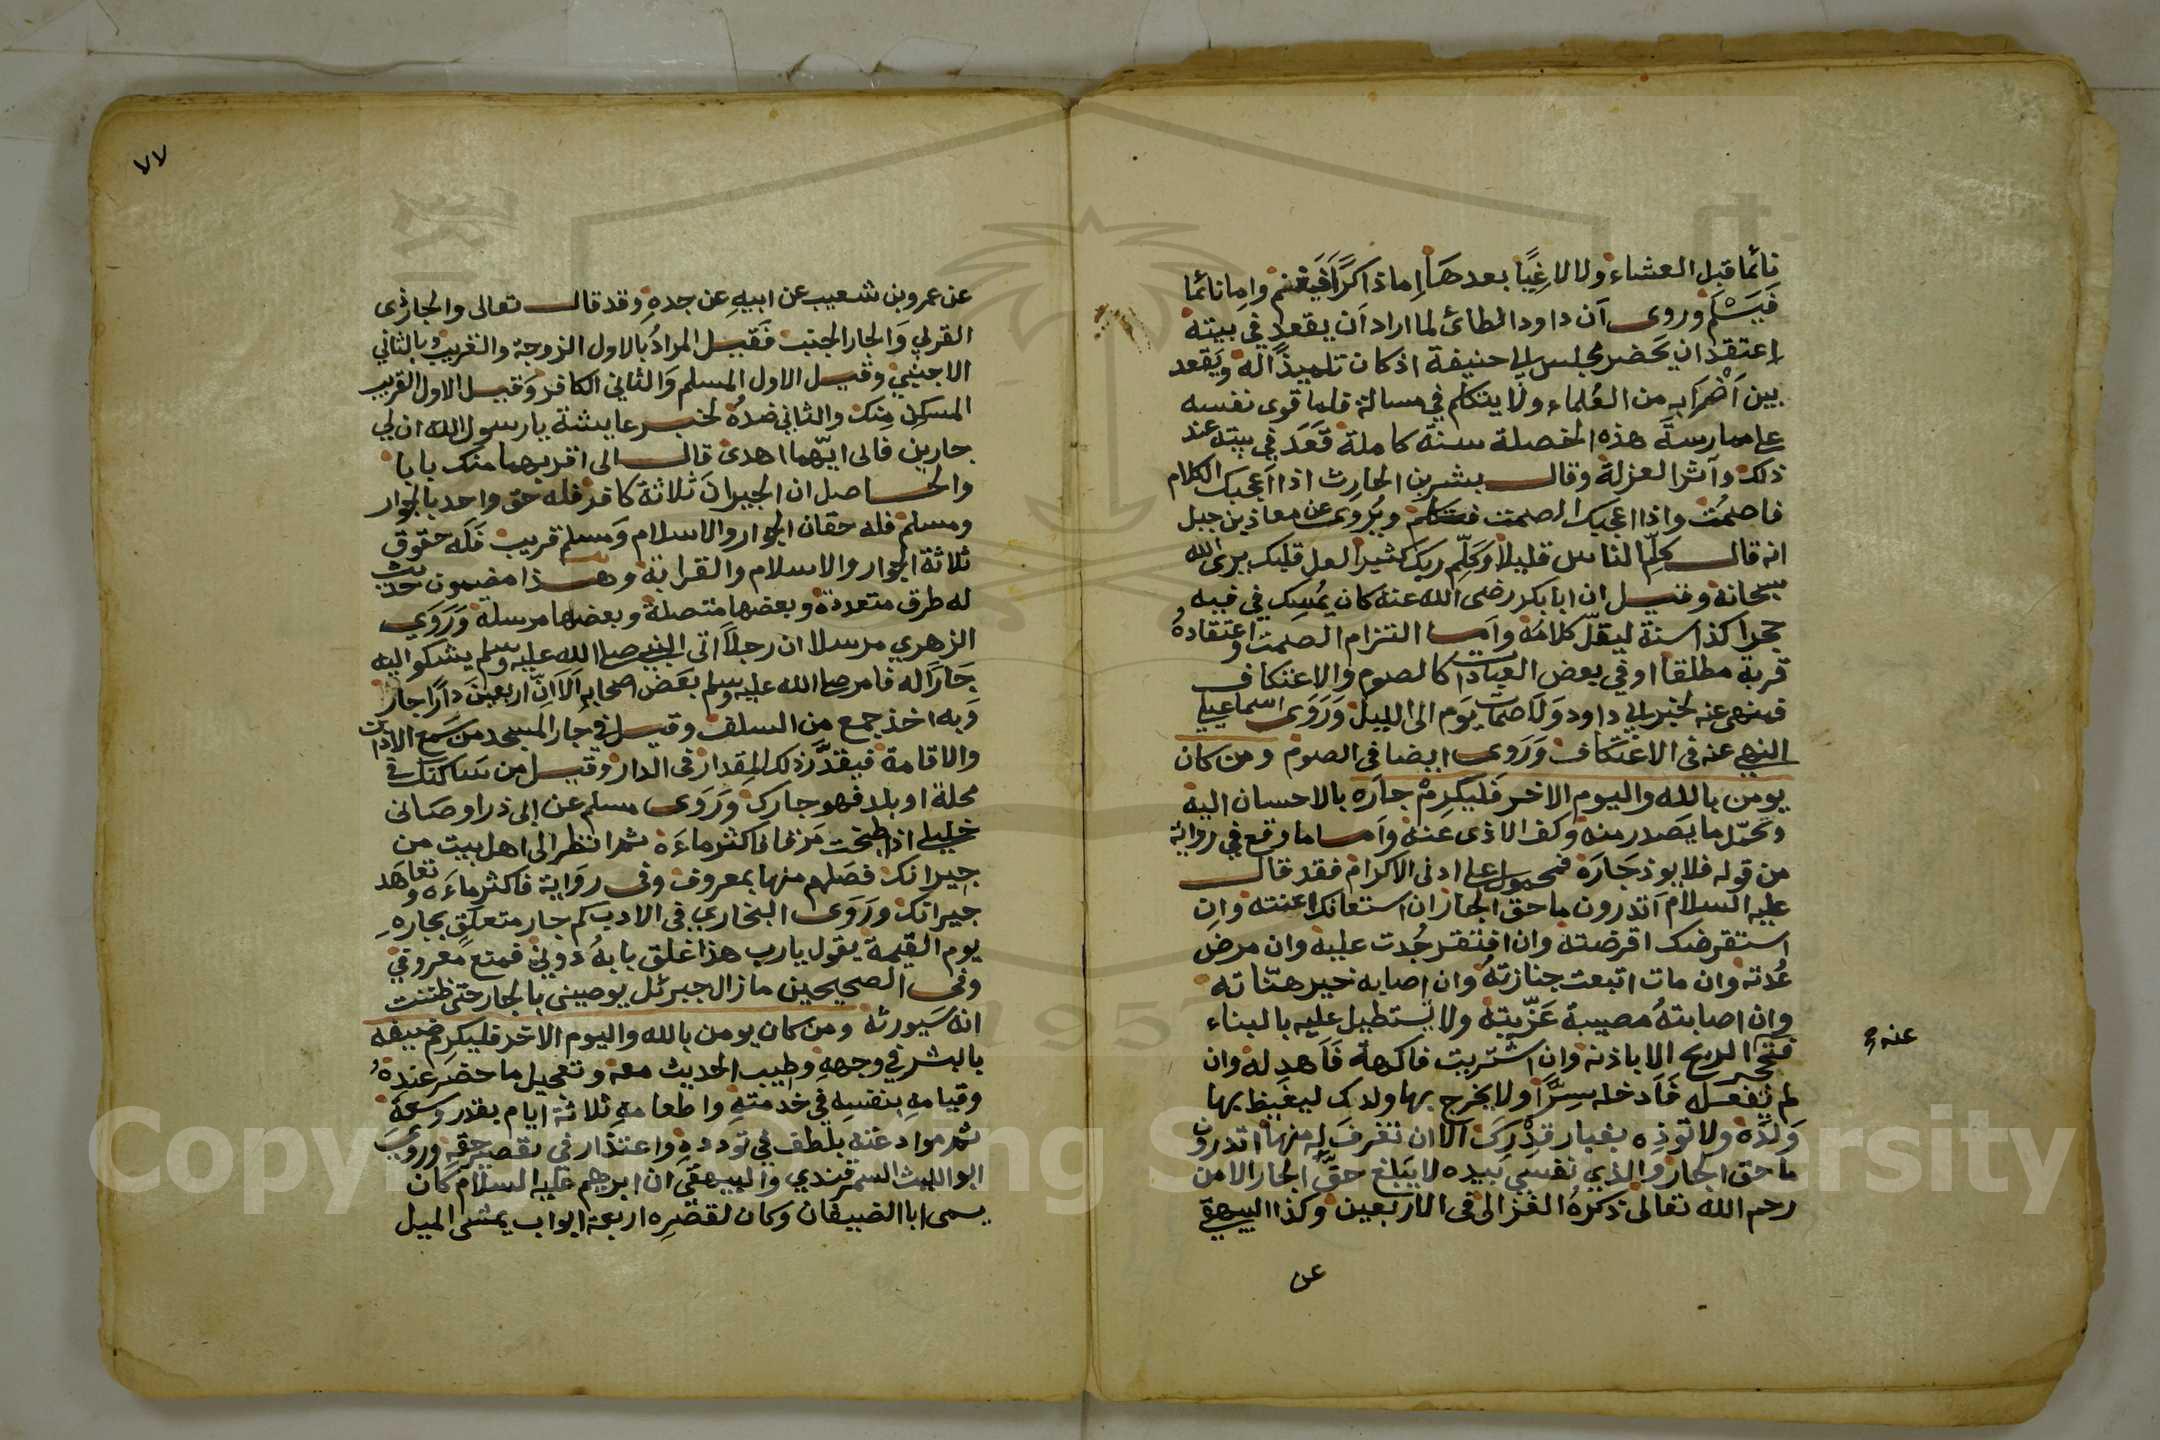 نائما قبل العشاء ولا لاغيًا بعدها إما ذاكرًا فيغنم وإما نائما
فيسلم وروى أن داود الطائ لما اراد أن يقعد في بيته
إعتقد ان يحضر مجلس ابي حنيفة اذ كان تلميذًا له ويقعد
بين أضرابه من العُلماء ولا يتكلم في مسالة فلما قوى نفسه
على ممارسة هذه الخصلة سنة كاملة قعَدَ في بيته عند
ذلك وآثر العزلة وقال بشر بن الحارث اذا اعجبك الكلام
فاصمُت واذا اعجبك الصمت فتكلم ويُروى عن معاذ بن جبل
انه قال كلِّم الناس قليلا وكلِّم ربك كثيرا لعل قلبك يرى الله
سبحانه وقيل ان ابا بكر رضى الله عنه كان يُمسِك في فيه
حجرا كذا سنة ليقلّ كلامُه وأما التزام الصمت واعتقادهُ
قربة مطلقا او في بعض العبادات كالصوم والاعتكاف
فمنهى عنه لخبر ابي داود ولا صمات يوم الى الليل وروى اسماعيلي
النهي عنه فى الاعتكاف وروى ايضا فى الصوم ومن كان
يومن بالله واليوم الاخر فليكرمْ جارَه بالاحسان اليه
وتحمّل ما يصدر منه وكف الاذى عنه وأما ما وقع في رواية
من قوله فلا يوذ جارَه فمحمول على ادنى الاكرام فقد قال
عليه السلام أتدرون ما حق الجار ان استعانك اعنته وان
استقرضك اقرضته وان افتقر جُدت عليه وان مرض
عُدته وان مات اتبعت جنازتهُ وان اصابه خير هنّاته
وان اصابتهُ مصيبة عَزّيتهُ ولا يستطيل عليه بالبناء
فتحجر الريح الا باذنه وان اشتريت فاكهة فَاهدِ له وان
عنه
لم تفعل فَادخله سِرًّا ولا يخرج بها ولدك ليغيظ بها
وَلدَه ولا توذِه بغبار قِدرِكَ الا ان تغرفَ له منها اتدرون
ما حق الجار والذي نفسي بيده لا يبلغ حقَّ الجار الا من
رحم الله تعالى ذكرهُ الغزالى فى الاربعين وكذا البيهقي
عن
٧٧
عن عمرو بن شعيب عن ابيهِ عن جدهِ وقد قال تعالى والجار ذى
القربي وَالجار الجنب فقيل المرادُ بالاول الزوجة والقريب وبالثاني
الاجنبي وقيل الاول المسلم وَالثاني الكافر وَقيل الاول القريب
المسكن منك والثاني ضدُه لخبر عايشة يا رسول الله ان لي
جارين فالى ايّهما اهدى قال الى اقربهما منك بابا
والحاصل ان الجيرانَ ثلاثة كافر فله حق واحد بالجوار
ومسلم فله حقان الجوار والاسلام وَمسلم قريب فَلَه حقوق
ثلاثة الجوار والاسلام والقرابة وهذا مضمون حديث
له طرق متعددة وبعضها متصلة وبعضها مرسلة وَرَوَي
الزهري مرسلا ان رجلاً اتى النبي صلى الله عليه وسلم يشكو اليه
جَارًا له فامر صلى الله عليه وسلم بعَض اصحابه ألا اِنّ اربعينَ دارًا جار
وَبه اخذ جمع من السلف وقيل في جار المسجد من سَمع الاذان
والاقامة فيقدَّر ذلك المِقدار فى الدار وقيل من ساكنك في
محلة او بلد فهو جارك وَرَوى مسلم عن ابى ذر اوصَانى
خليلي اذا طبخت مَرَقا فاكثر ماءَه ثم انظر الى اهل بيت من
جيرانك فصَلهم منها بمعروف وفى روَاية فاكثر ماءَه وتعاهَد
جيرانك ورَوَى البخاري فى الادب كم جار متعلق بجارهِ
يوم القيمة يقول يارب هذا غلق بابهُ دوني فمنع معروفى
وفى الصحيحين ما زال جبرئل يوصينى بالجار حتى ظننت
انه سَيورثه ومن كان يومن بالله واليوم الاخر فليكرم ضيفه
بالبشر في وجههِ وطيب الحديث معه وتعجيل ما حضَر عِندهُ
وقيامهِ بنفسهِ في خدمتهِ واطعامهِ ثلاثة ايام بقدر وسعه
ثم موادعته بلطف في تودده واعتذار فى تقصير حقه وروى
ابو الليث السمرقندي والبيهقى ان ابرهيم عليه السلام كان
يسمى ابا الضيفان وَكان لقصْرِه اربعة ابواب يمشى الميل